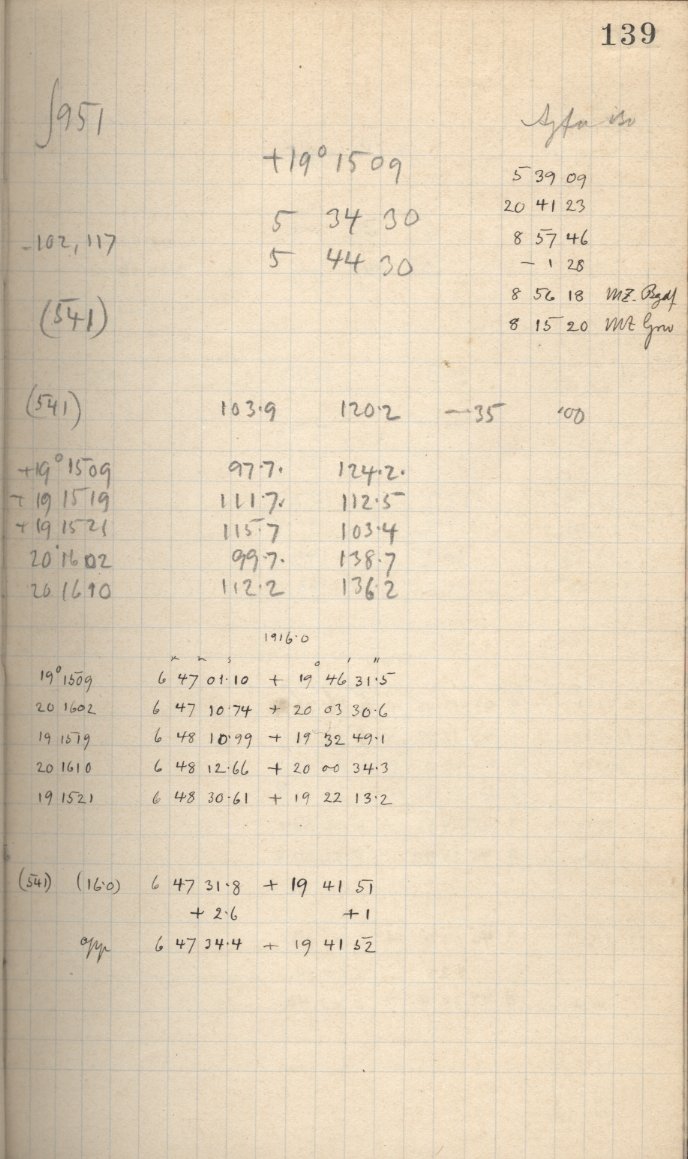 139
951
Agfa
+19° 1509
5 39 09
5 34 30
20 41 23
-102, 117
5 44 30
8 57 46
- 1 28
(541)
8 56 18 MZ. Bgdf
8 15 20 MZ Grw
(541) 103.9 120.2 -35 .00
+19° 1509 97.7. 124.2.
+19 1519 111.7. 112.5
+19 1521 115.7 103.4
20° 1602 99.7. 138.7
20 1610 112.2 136.2
1916.0
h m s ° ' "
19° 1509 6 47 01.10 + 19 46 31.5
20 1602 6 47 10.74 + 20 03 30.6
19 1519 6 48 10.99 + 19 32 49.1
20 1610 6 48 12.66 + 20 00 34.3
19 1521 6 48 30.61 + 19 22 13.2
(541) (16.0) 6 47 31.8 + 19 41 51
+ 2.6 +1
app 6 47 34.4 + 19 41 52